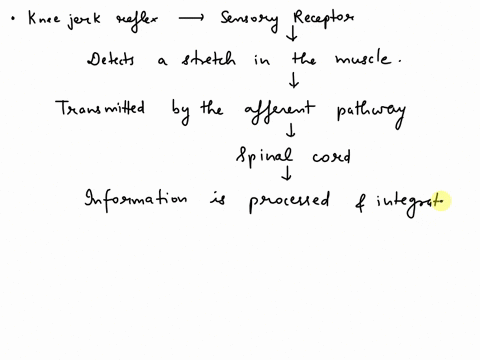 • Knee jerk reflex → Sensory Receptor
↓
Detects a stretch in the muscle.
↓
Transmitted by the afferent pathway
↓
Spinal cord
↓
Information is processed & integrat